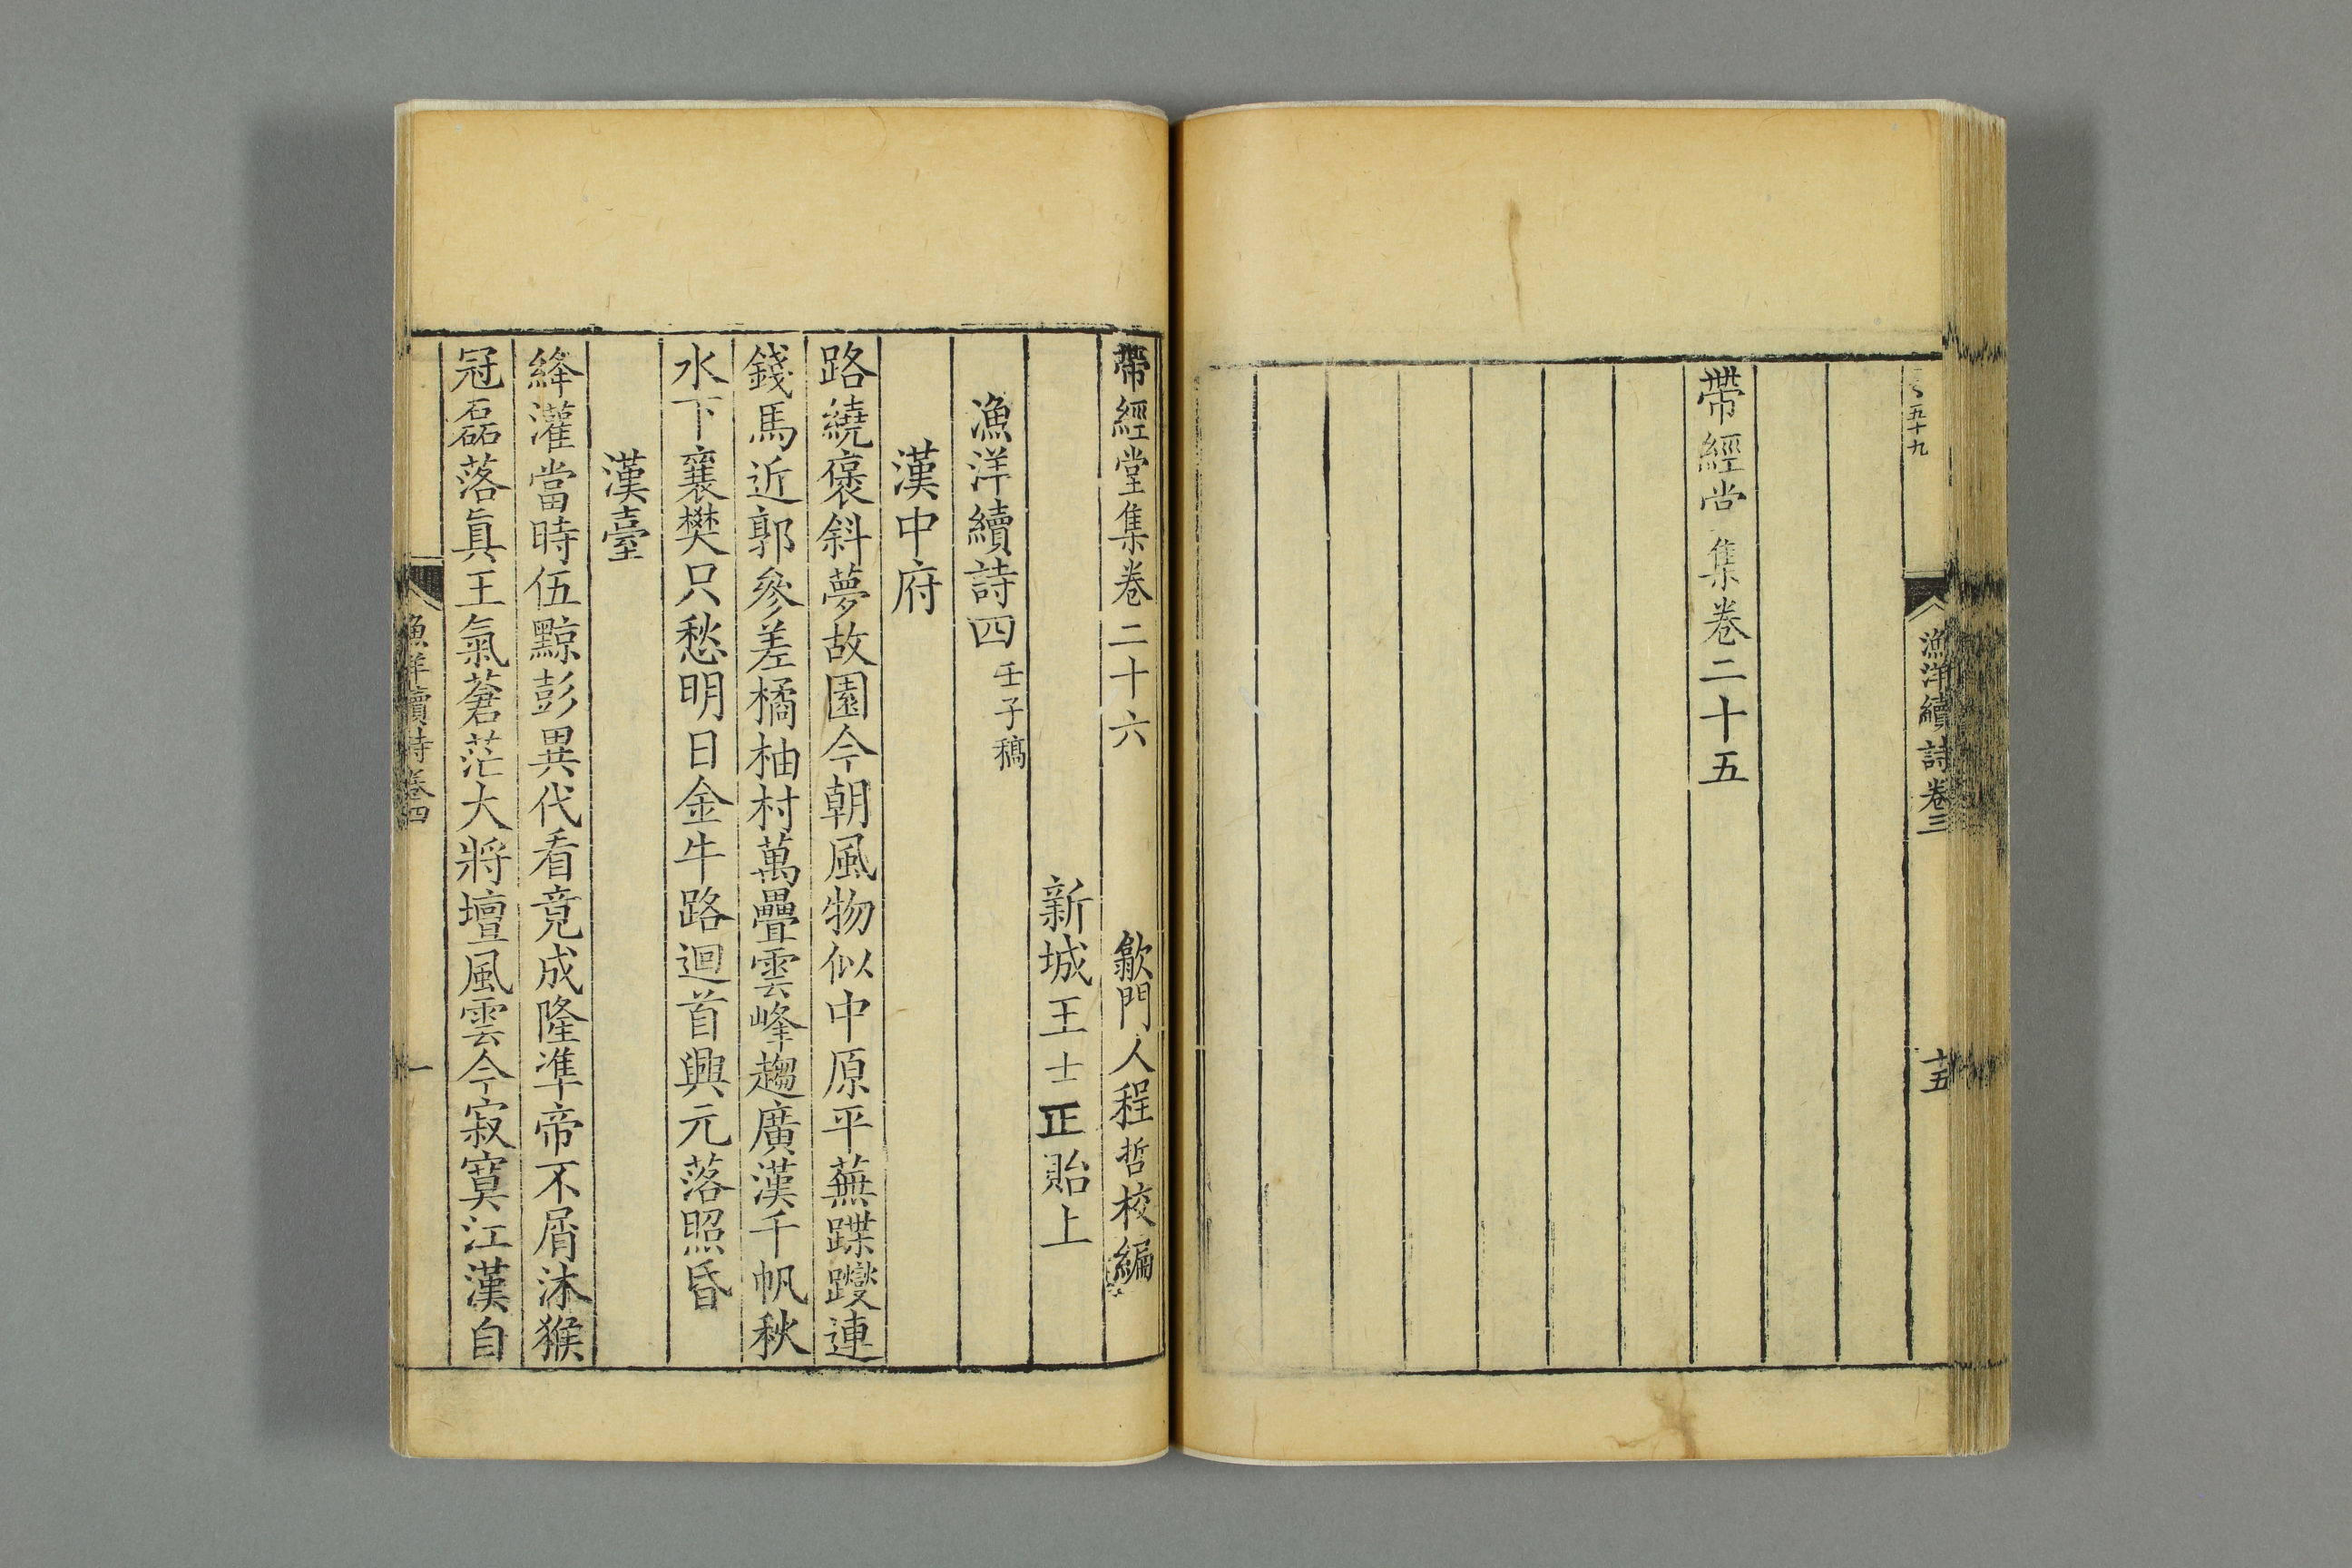 五十九
漁洋續詩卷三
十五
帶經堂集卷二十五
帶經堂集卷二十六
歙門人程哲校編
新城王士正貽上
漁洋續詩四
壬子稿
漢中府
路繞褒斜夢故園今朝風物似中原平蕪蹀躞連
錢馬近郭參差橘柚村萬疊雲峰趨廣漢千帆秋
水下襄樊只愁明日金牛路迴首興元落照昏
漢臺
絳灌當時伍黥彭異代看竟成隆準帝不屑沐猴
冠磊落眞王氣蒼茫大將壇風雲今寂寞江漢自
漁洋續詩卷四
一